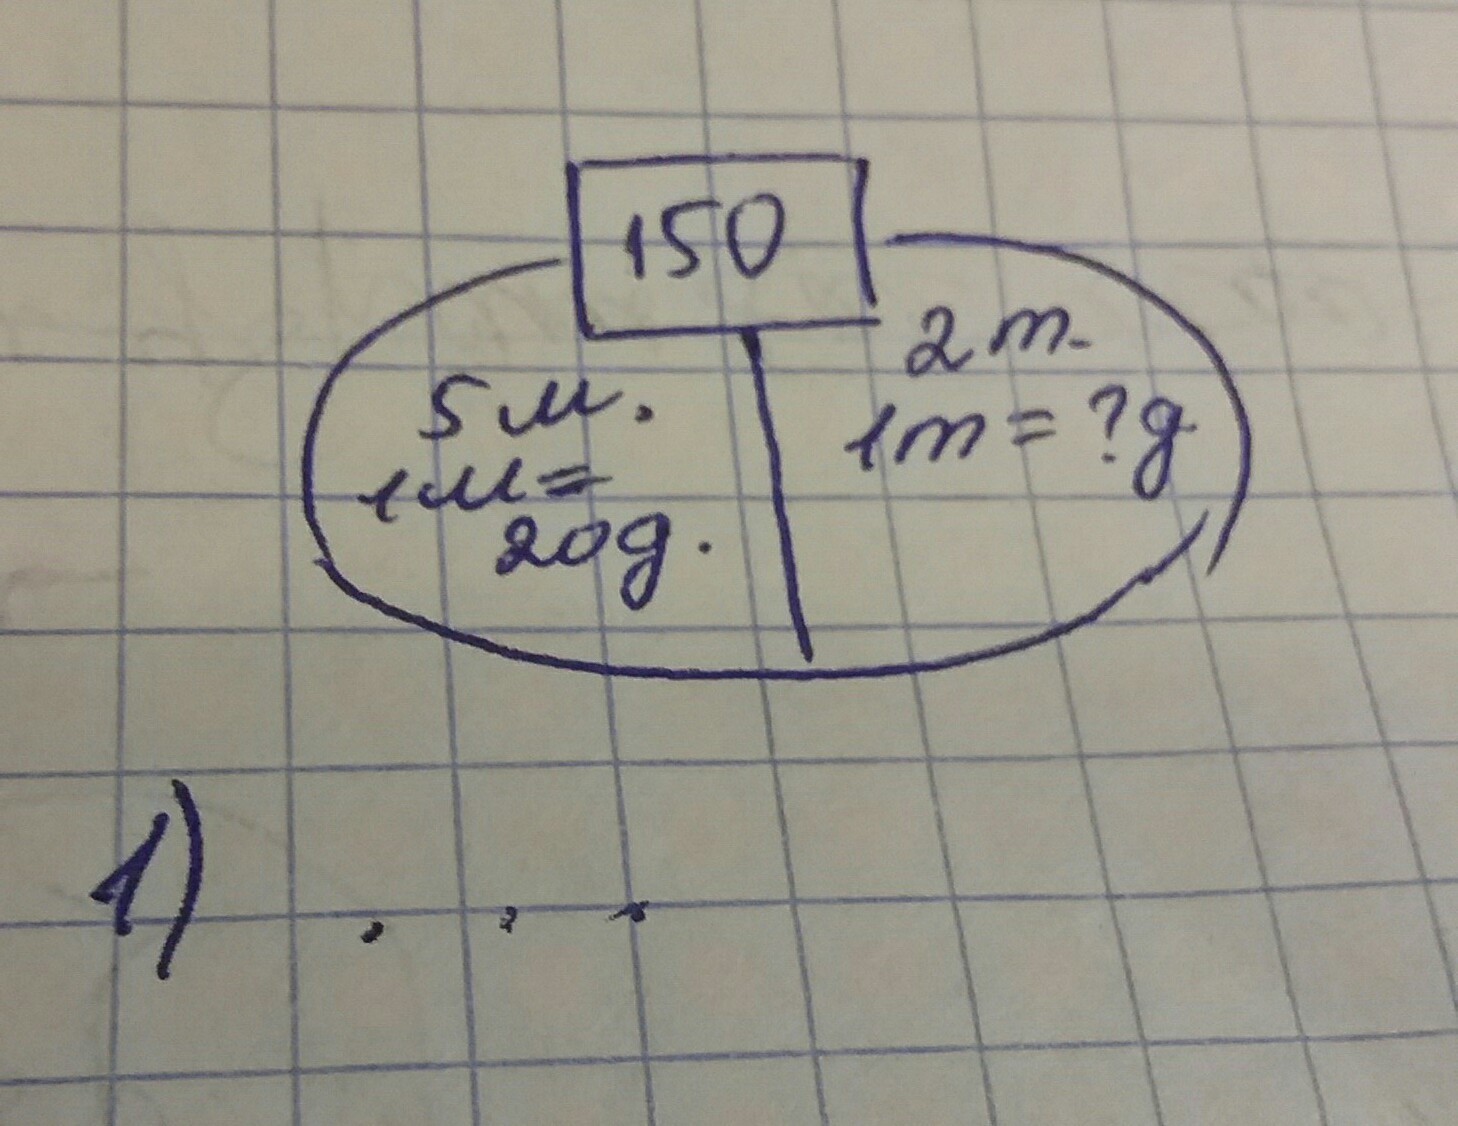 150
5 м.
1м=
20д.
2 т.
1т = ?д
1) . . .